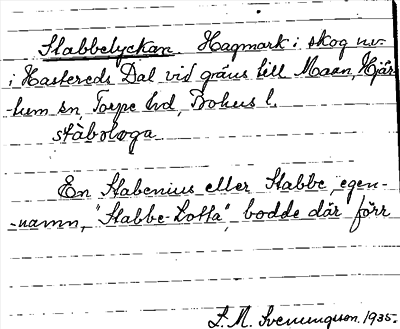 Stabbelyckan. Hagmark i skog nv.
i Hastereds Dal vid gräns till Maan, Hjär-
-tum sn, Torpe hd, Bohus l.
stàbəlɵga
En Stabenius eller Stabbe, egen-
-namn, "Stabbe-Lotta", bodde där förr
L. M. Svenungsson. 1935.